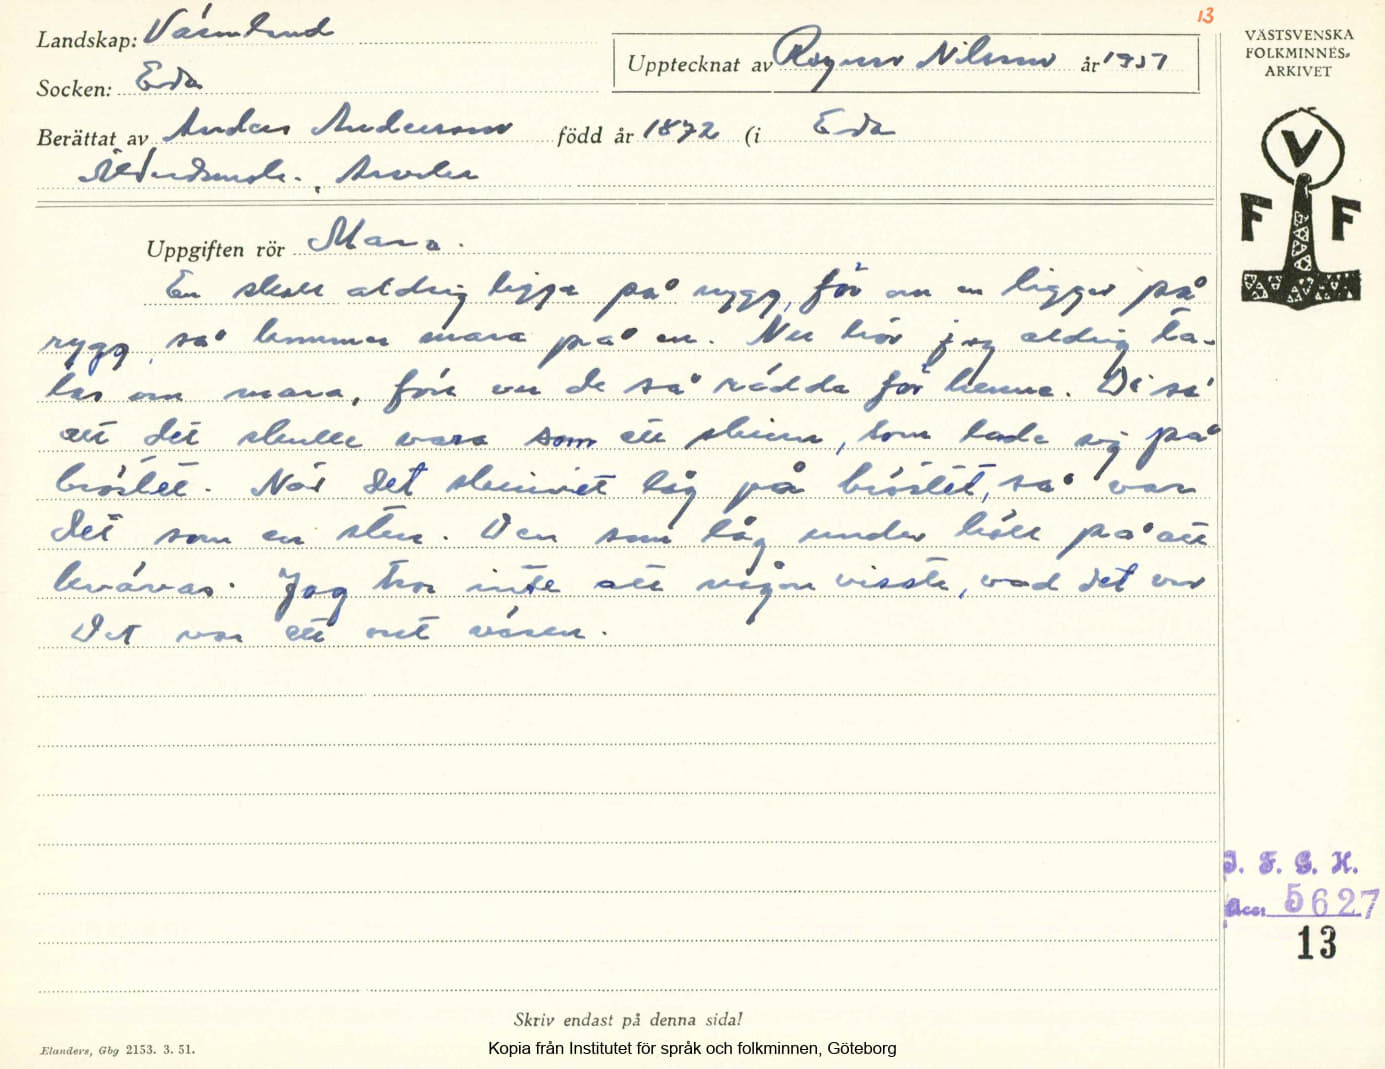 13
Landskap: Värmland
Upptecknat av Ragnar Nilsson år 1957
Socken: Eda
Berättat av Anders Andersson född år 1872 (i Eda
Ålderdomsh., Arvika
Uppgiften rör Mara.
En skall aldrig ligga på rygg, för om en ligger på
rygg, så kommer mara på en. Nu hör jag aldrig ta-
las om mara, förr var de så rädda för henne. Di sa
att det skulle vara som ett skinn, som lade sig på
bröstet. När det skinnet låg på bröstet, så var
det som en sten. Den som låg under höll på att
kvävas. Jag tror inte att någon visste, vad det var
Det var ett ont väsen.
VÄSTSVENSKA
FOLKMINNES-
ARKIVET
V
F F
I. F. G. H.
Acc: 5627
13
Skriv endast på denna sida!
Elanders, Gbg 2153. 3. 51.
Kopia från Institutet för språk och folkminnen, Göteborg